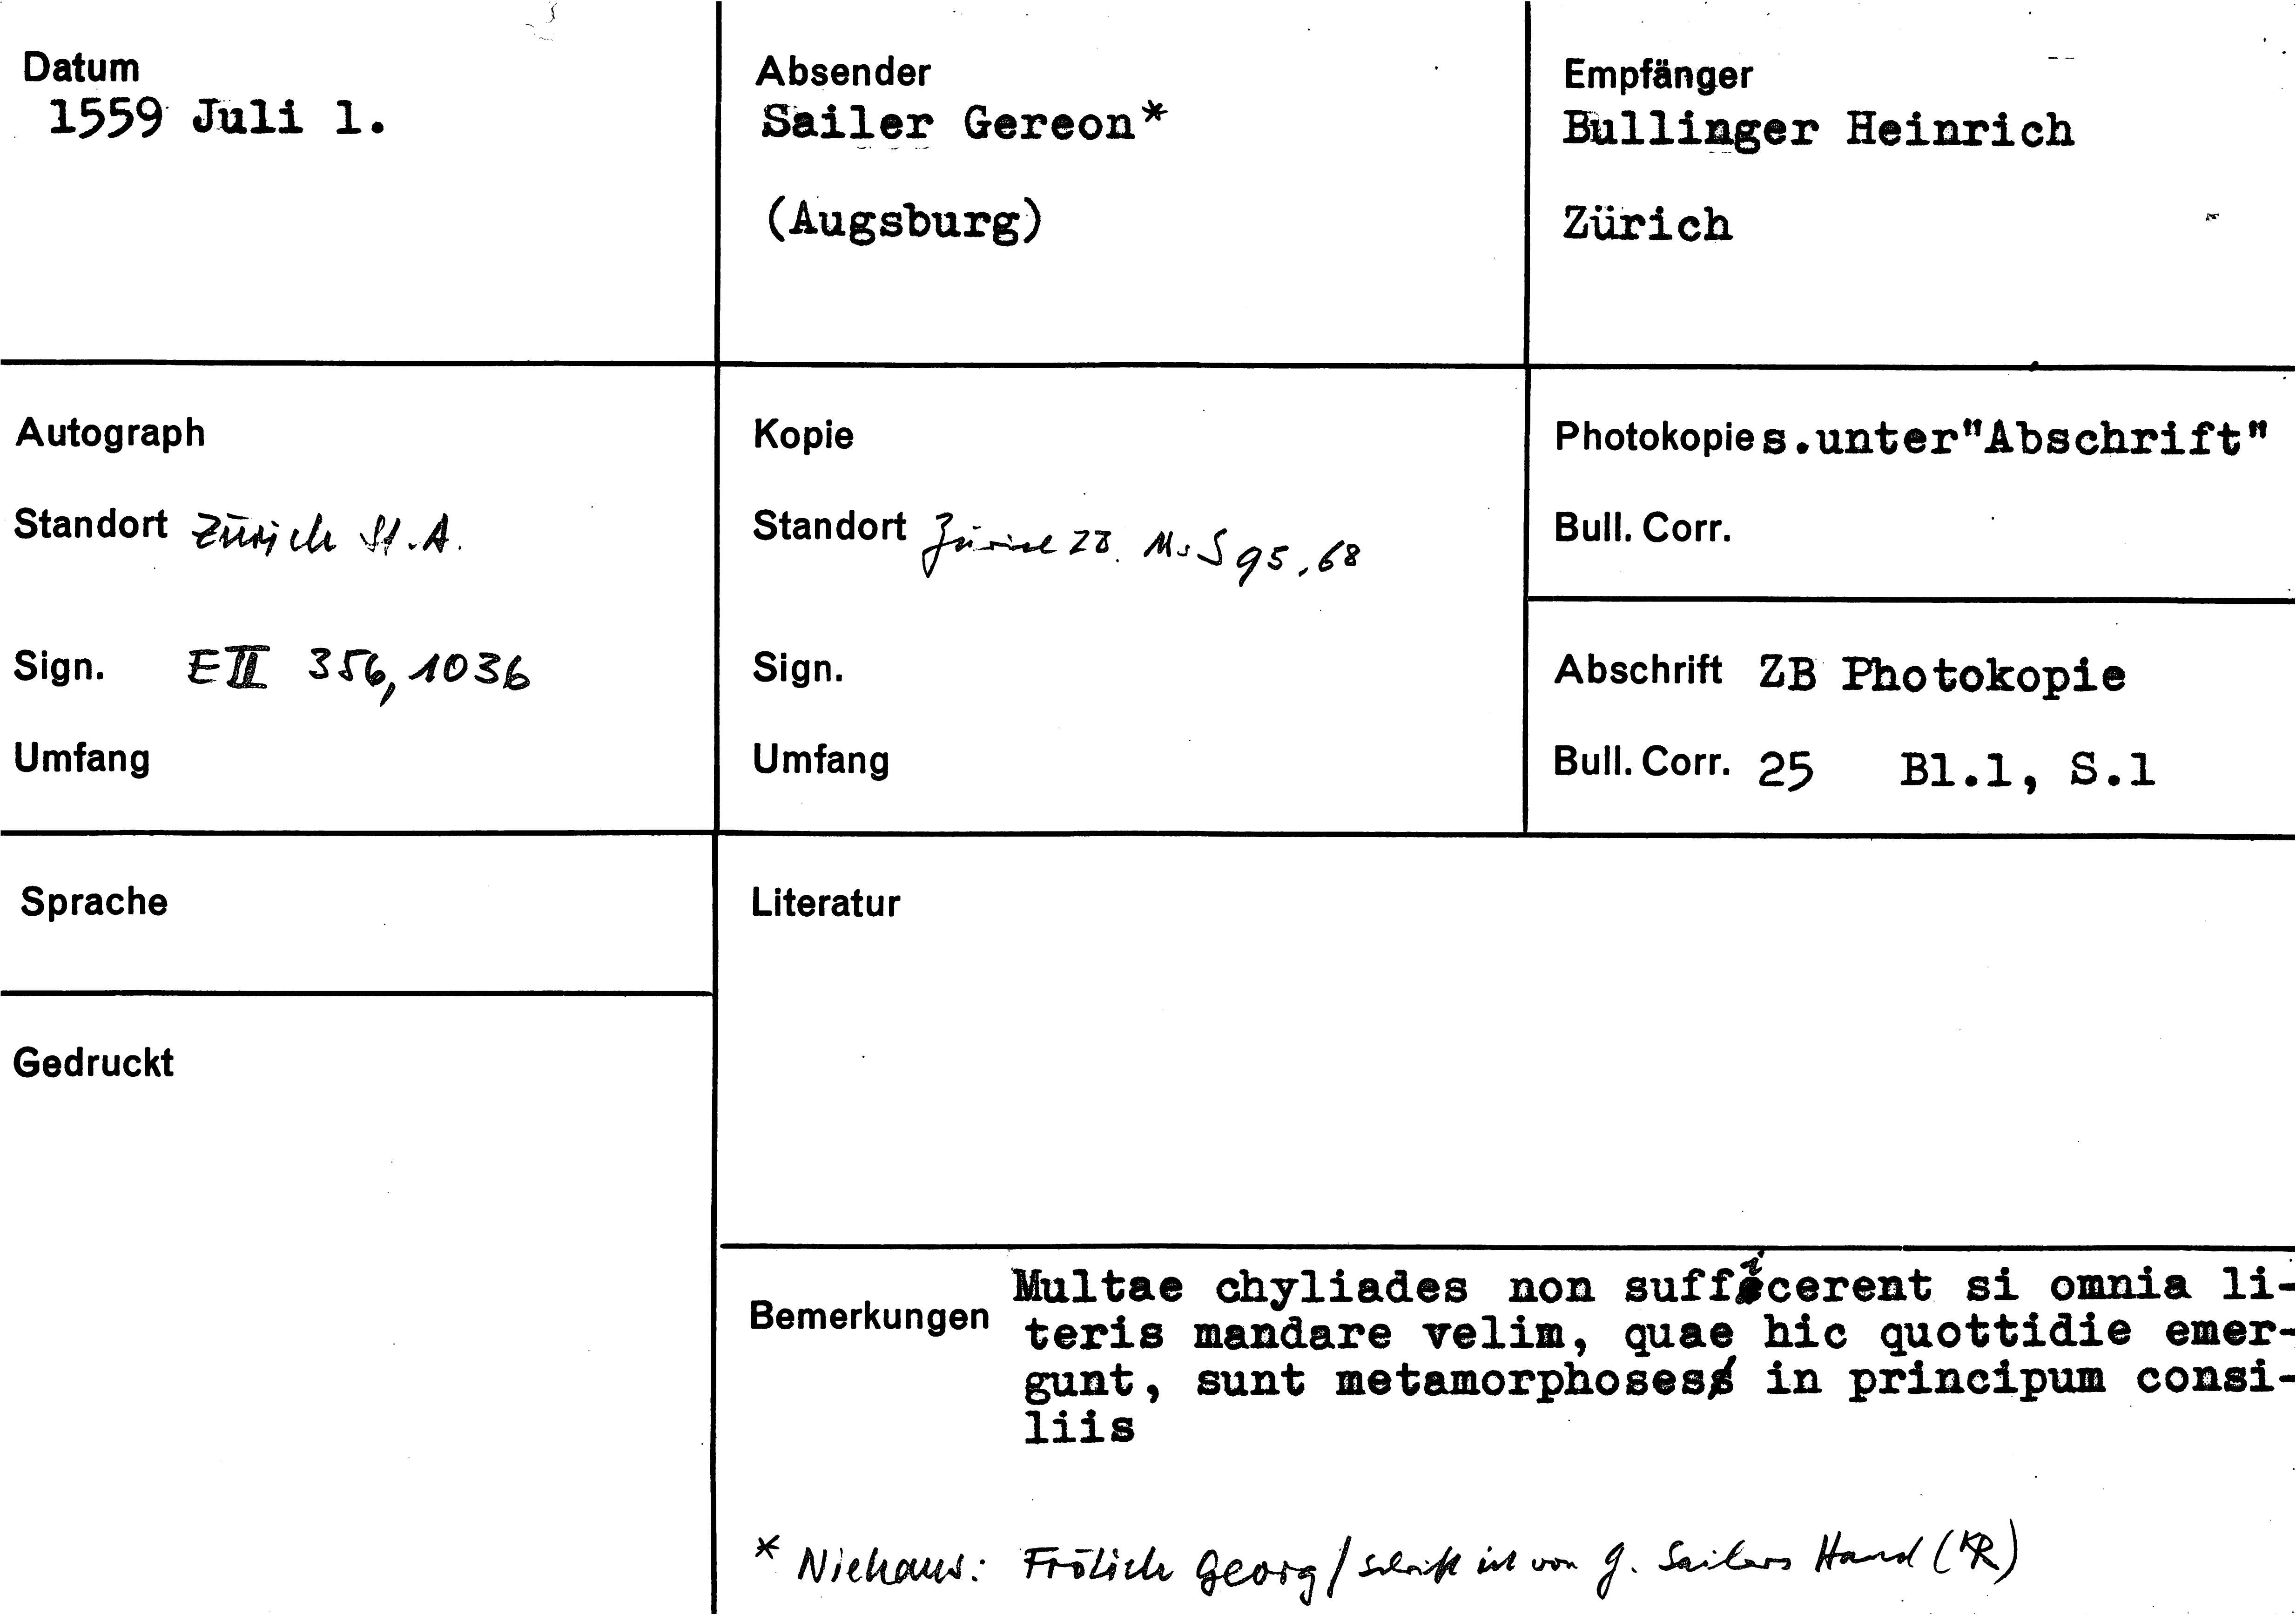 Datum
1559 Juli 1.
Absender
Sailer Gereon*
(Augsburg)
Empfänger
Bullinger Heinrich
Zürich
Autograph
Standort Zürich St.A.
Sign. E II 356, 1036
Umfang
Kopie
Standort Zürich ZB. Ms S 95, 68
Sign.
Umfang
Photokopie s.unter"Abschrift"
Bull. Corr.
Abschrift ZB Photokopie
Bull. Corr. 25 Bl.1, S.1
Sprache
Gedruckt
Literatur
Bemerkungen
Multae chyliades non sufficerent si omnia li-
teris mandare velim, quae hic quottidie emer-
gunt, sunt metamorphoses in principum consi-
liis
* Niehaus: Frölich Georg / Schrift ist von G. Sailers Hand (KR)